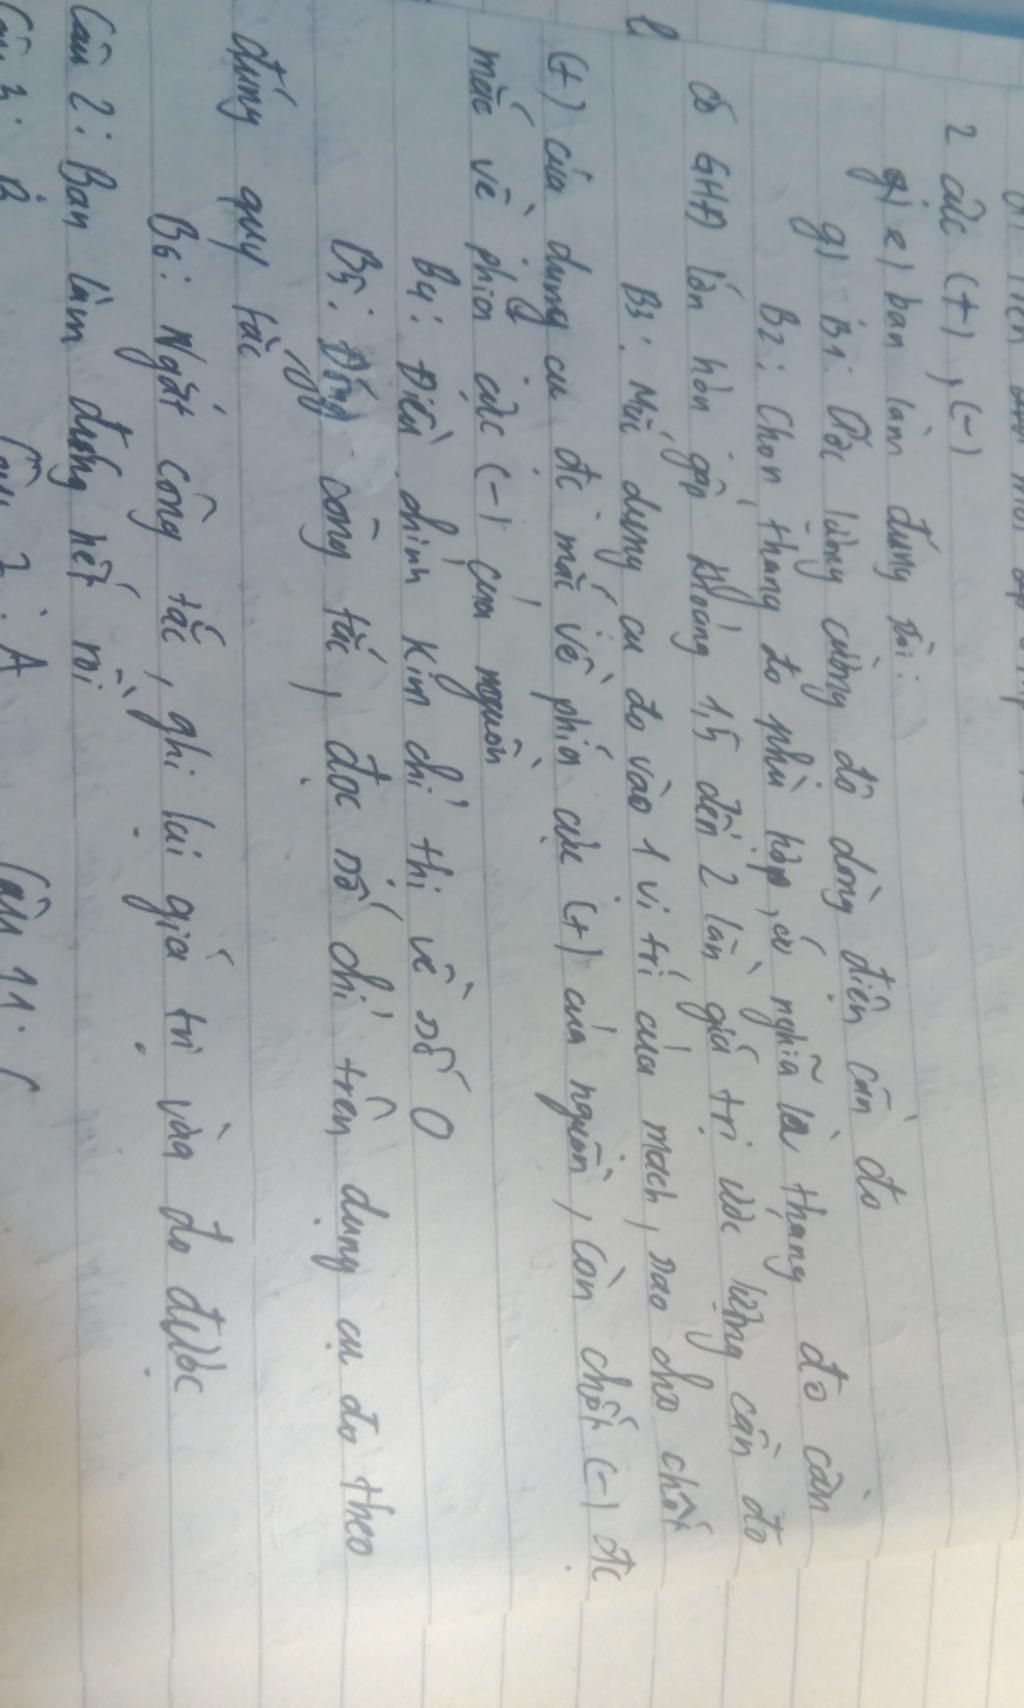 2 cực (+), (-)
e) bạn làm đúng rồi:
g) B1: Ước lượng cường độ dòng điện cần đo
B2: Chọn thang đo phù hợp, có nghĩa là thang đo cần
có GHĐ lớn hơn gấp khoảng 1,5 đến 2 lần giá trị ước lượng cần đo
B3: Mắc dụng cụ đo vào 1 vị trí của mạch, sao cho chốt
(+) của dụng cụ đc mắc về phía cực (+) của nguồn, còn chốt (-) đc
mắc về phía cực (-) của nguồn
B4: Điều chỉnh kim chỉ thị về số 0
B5: Đóng công tắc, đọc số chỉ trên dụng cụ đo theo
đúng quy tắc
B6: Ngắt công tắc, ghi lại giá trị vừa đo được
Câu 2: Bạn làm đúng hết rồi
Câu 3: B Câu 7: A Câu 11: